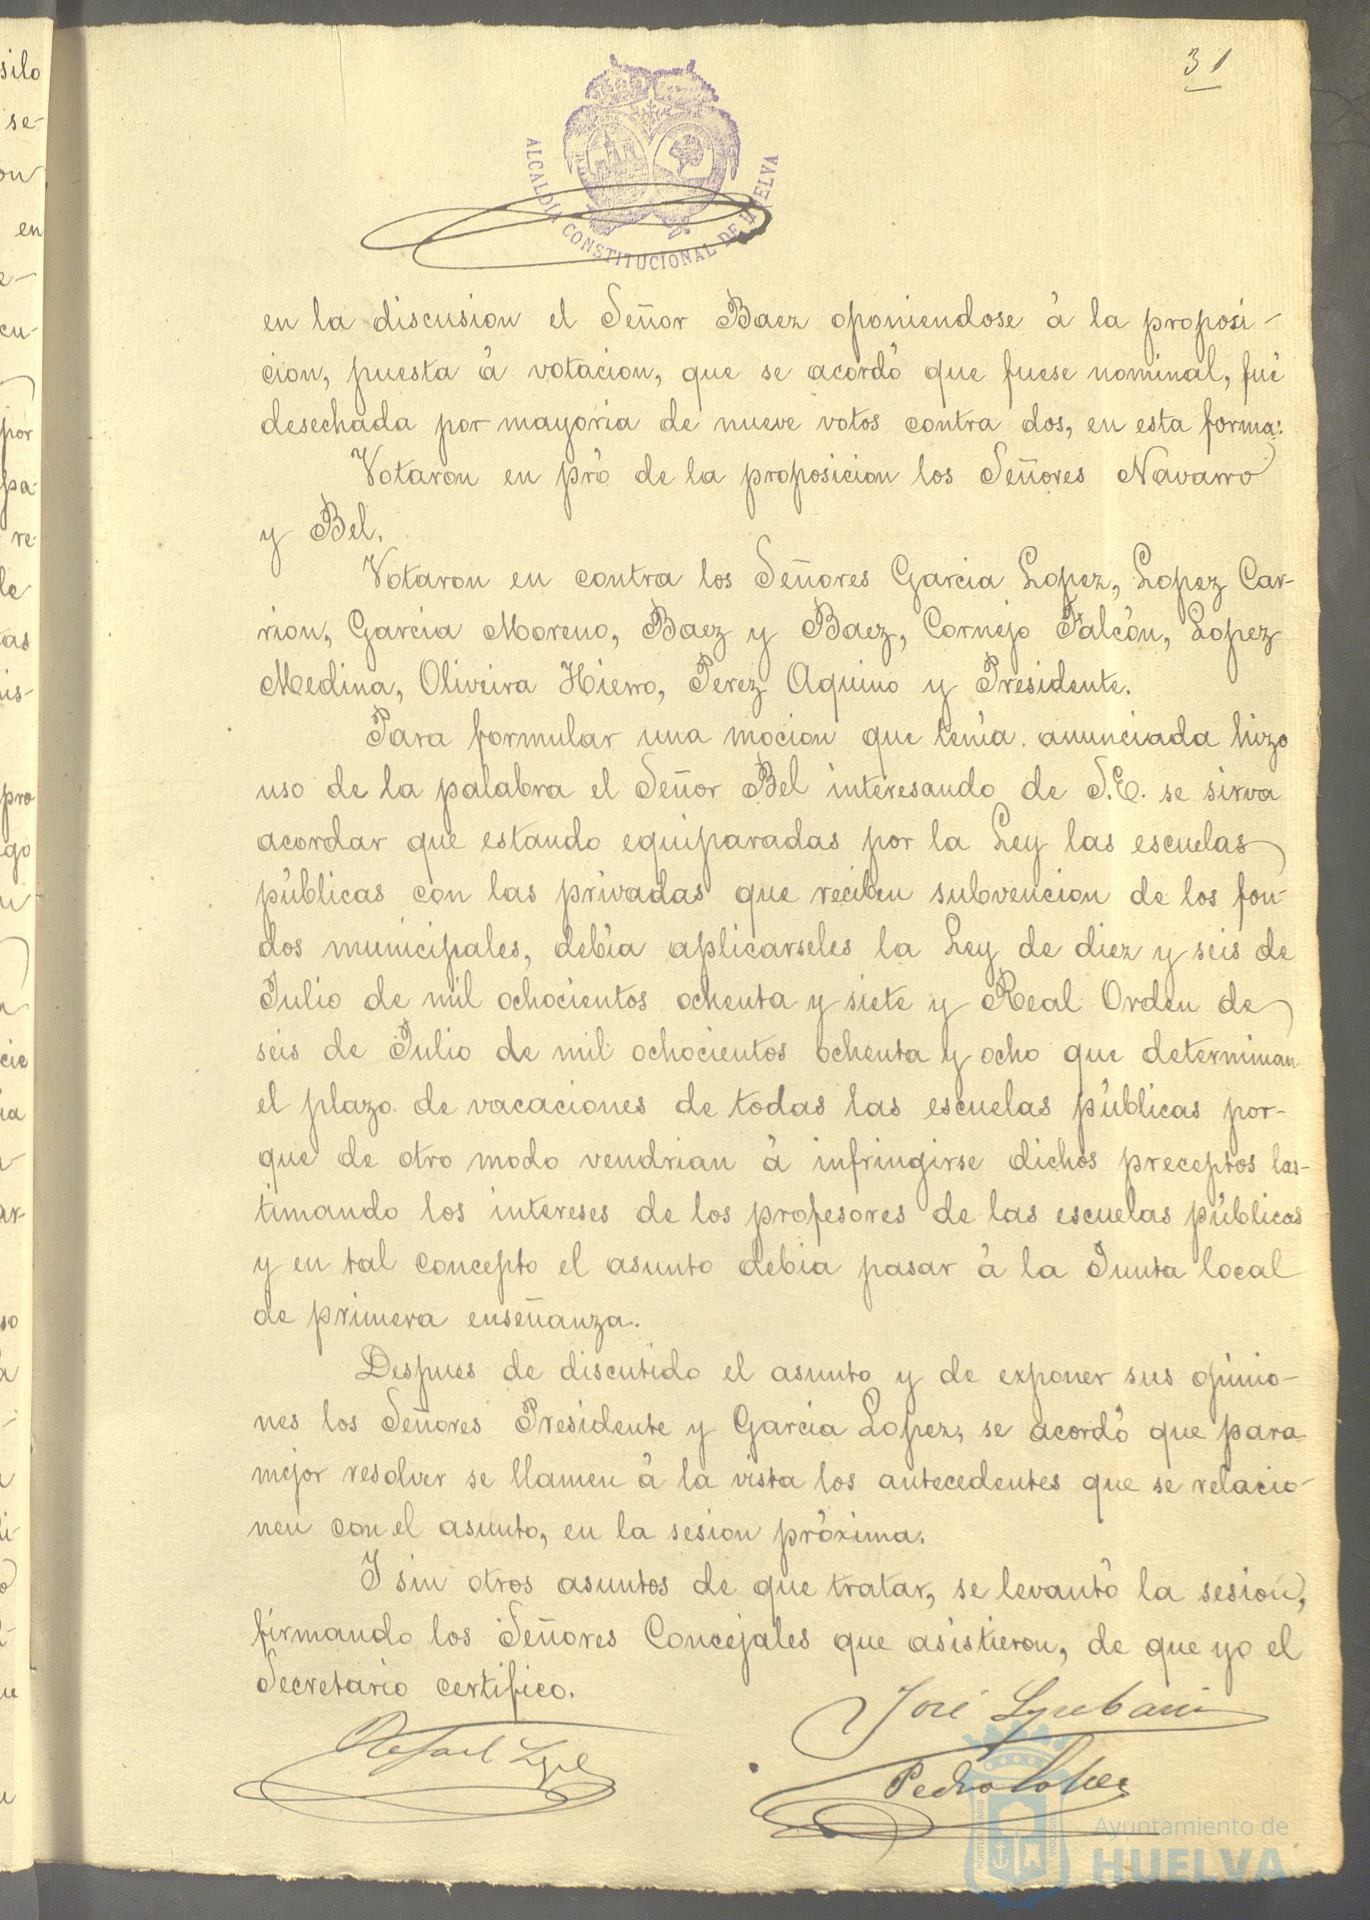 31
ALCALDIA CONSTITUCIONAL DE HUELVA
en la discusion el Señor Baez oponiendose á la proposi-
cion, puesta á votacion, que se acordó que fuese nominal, fué
desechada por mayoria de nueve votos contra dos, en esta forma:
Votaron en pró de la proposicion los Señores Navarro
y Bel.
Votaron en contra los Señores Garcia Lopez, Lopez Car-
rion, Garcia Moreno, Baez y Baez, Cornejo Falcón, Lopez
Medina, Oliveira Hierro, Perez Aquino y Presidente.
Para formular una mocion que tenía anunciada hizo
uso de la palabra el Señor Bel interesando de S.E. se sirva
acordar que estando equiparadas por la Ley las escuelas
públicas con las privadas que reciben subvencion de los fon-
dos municipales, debía aplicarseles la Ley de diez y seis de
Julio de mil ochocientos ochenta y siete y Real Orden de
seis de Julio de mil ochocientos ochenta y ocho que determinan
el plazo de vacaciones de todas las escuelas públicas por-
que de otro modo vendrian á infringirse dichos preceptos las-
timando los intereses de los profesores de las escuelas públicas
y en tal concepto el asunto debia pasar á la Junta local
de primera enseñanza.
Despues de discutido el asunto y de exponer sus opinio-
nes los Señores Presidente y Garcia Lopez, se acordó que para
mejor resolver se llamen á la vista los antecedentes que se relacio-
nen con el asunto, en la sesion próxima.
I sin otros asuntos de que tratar, se levantó la sesion,
firmando los Señores Concejales que asistieron, de que yo el
Secretario certifico.
José
Rafael
Pedro Lopez
Ayuntamiento de
HUELVA